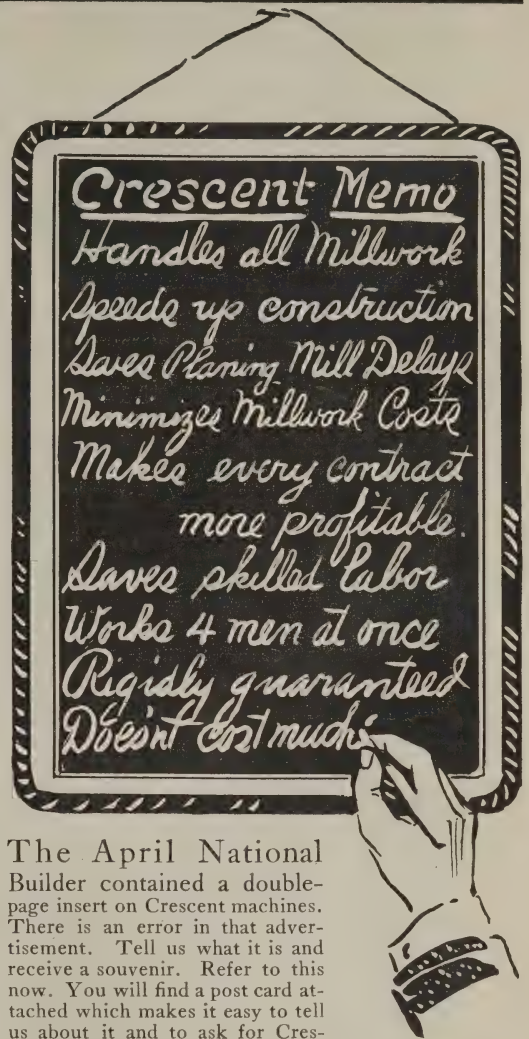 Crescent Memo
Handles all Millwork
Speeds up construction
Saves Planing Mill Delays
Minimizes Millwork Costs
Makes every contract
more profitable.
Saves skilled labor
Works 4 men at once
Rigidly guaranteed
Does'nt cost much
The April National
Builder contained a double-
page insert on Crescent machines.
There is an error in that adver-
tisement. Tell us what it is and
receive a souvenir. Refer to this
now. You will find a post card at-
tached which makes it easy to tell
us about it and to ask for Cres-